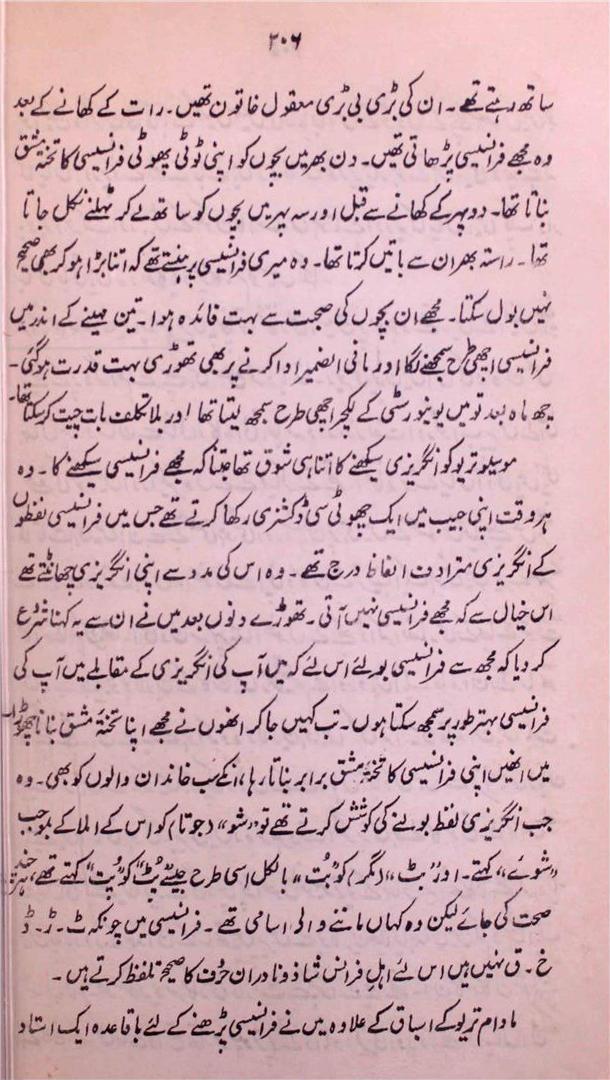 ۲۰۶
ساتھ رہتے تھے۔ ان کی بڑی بی بڑی معقول خاتون تھیں۔ رات کے کھانے کے بعد
وہ مجھے فرانسیسی پڑھاتی تھیں۔ دن بھر میں بچوں کو اپنی ٹوٹی پھوٹی فرانسیسی کا تختۂ مشق
بناتا تھا۔ دوپہر کے کھانے سے قبل اور سہ پہر میں بچوں کو ساتھ لے کر ٹہلنے نکل جاتا
تھا۔ راستہ بھر ان سے باتیں کرتا تھا۔ وہ میری فرانسیسی پر ہنستے تھے کہ اتنا بڑا ہو کر بھی صحیح
نہیں بول سکتا۔ مجھے ان بچوں کی صحبت سے بہت فائدہ ہوا۔ تین مہینے کے اندر میں
فرانسیسی اچھی طرح سمجھنے لگا اور مافی الضمیر ادا کرنے پر بھی تھوڑی بہت قدرت ہو گئی۔
چھ ماہ بعد تو میں یونیورسٹی کے لکچر اچھی طرح سمجھ لیتا تھا اور بلا تکلف بات چیت کر سکتا تھا۔
موسیو تریو کو انگریزی سیکھنے کا اتنا ہی شوق تھا جتنا کہ مجھے فرانسیسی سیکھنے کا۔ وہ
ہر وقت اپنی جیب میں ایک چھوٹی سی ڈکشنری رکھا کرتے تھے جس میں فرانسیسی لفظوں
کے انگریزی مترادف الفاظ درج تھے۔ وہ اس کی مدد سے اپنی انگریزی چھانٹتے تھے
اس خیال سے کہ مجھے فرانسیسی نہیں آتی۔ تھوڑے دنوں بعد میں نے ان سے یہ کہنا شروع
کر دیا کہ مجھ سے فرانسیسی بولئے اس لئے کہ میں آپ کی انگریزی کے مقابلے میں آپ کی
فرانسیسی بہتر طور پر سمجھ سکتا ہوں۔ تب کہیں جا کر انھوں نے مجھے اپنا تختۂ مشق بنانا چھوڑا۔
میں انھیں اپنی فرانسیسی کا تختۂ مشق برابر بناتا رہا، انکے سب خاندان والوں کو بھی۔ وہ
جب انگریزی لفظ بولنے کی کوشش کرتے تھے تو "شو" (جوتا) کو اس کے املا کے بموجب
"شوئے" کہتے۔ اور "بٹ" (مگر) کو "بُت" بالکل اسی طرح جیسے "پُٹ" کو "پُت" کہتے تھے، ہر چند
صحت کی جائے لیکن وہ کہاں ماننے والی اسامی تھے۔ فرانسیسی میں چونکہ ٹ۔ ڑ۔ ڈ
خ۔ ق نہیں ہیں اس لئے اہل فرانس شاذ و نادر ان حرف کا صحیح تلفظ کرتے ہیں۔
مادام تریو کے اسباق کے علاوہ میں نے فرانسیسی پڑھنے کے لئے باقاعدہ ایک استاد